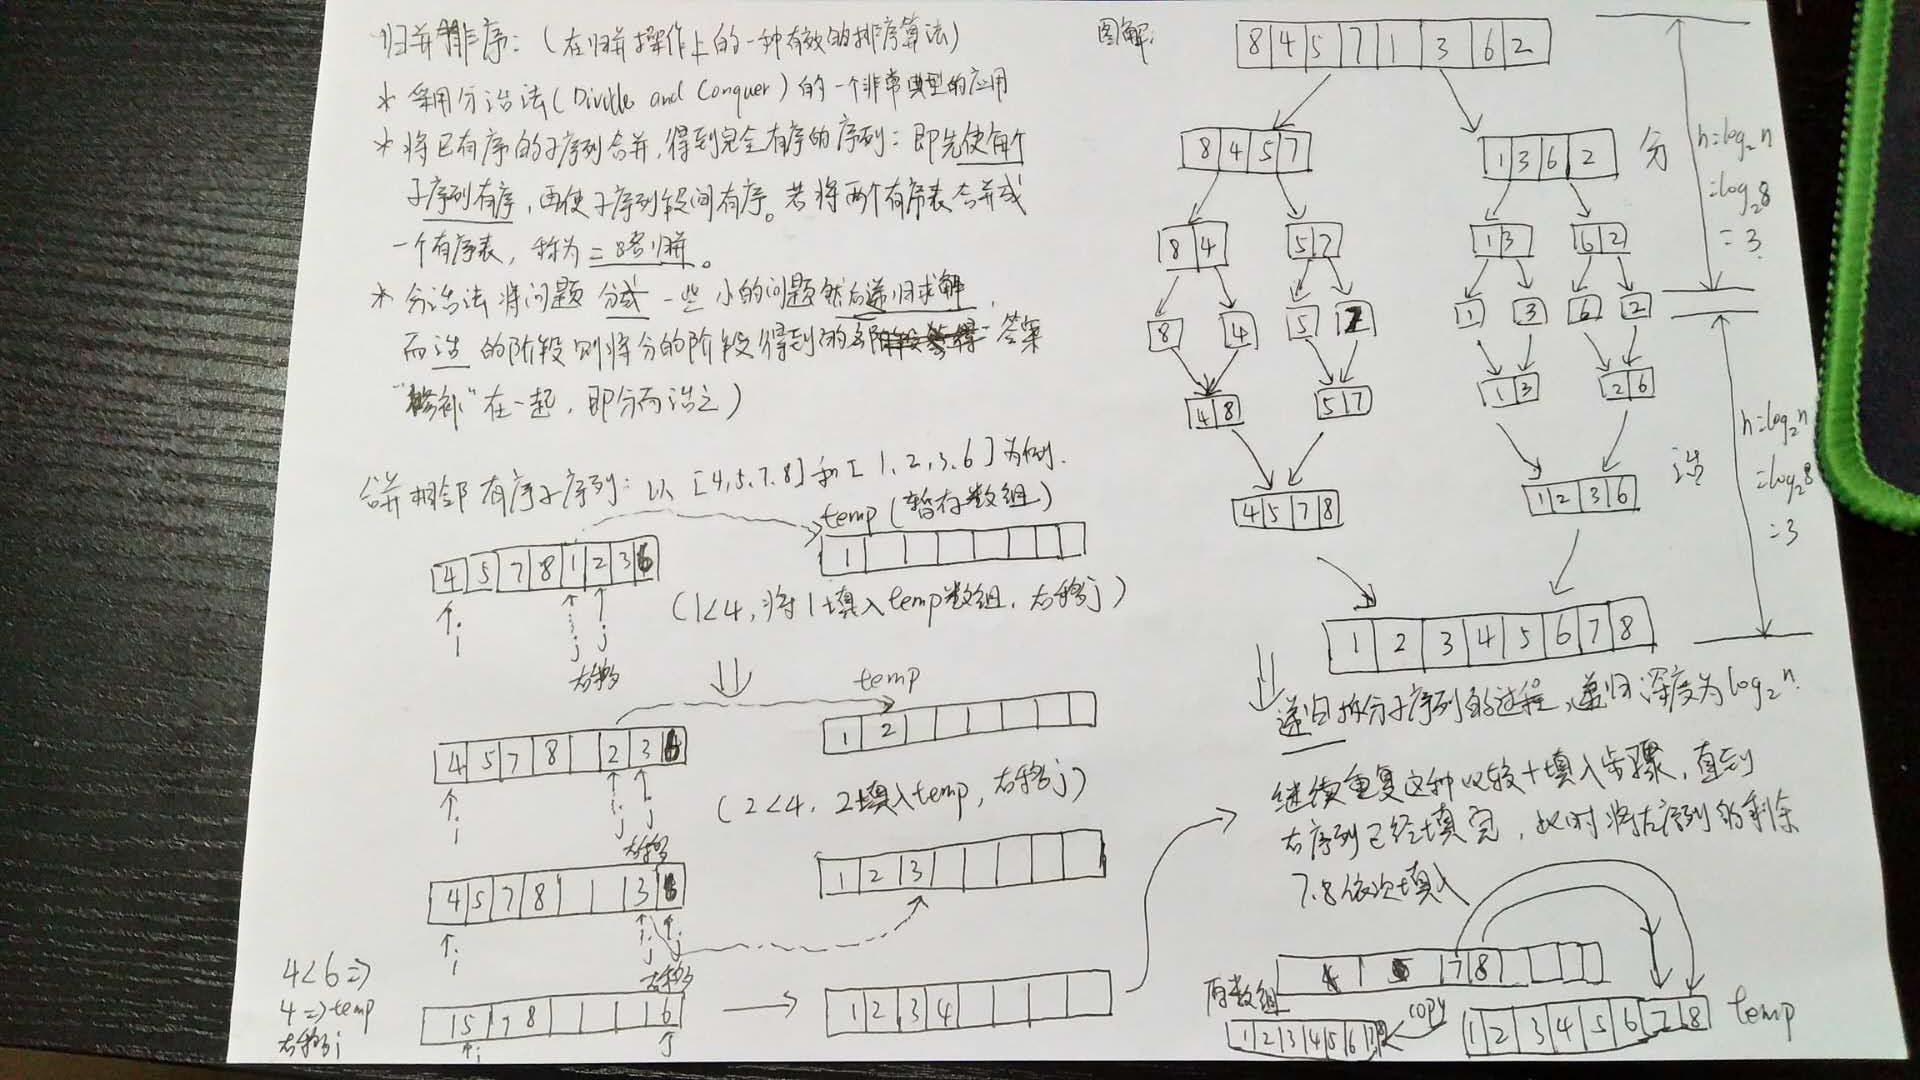 归并排序：（在归并操作上的一种有效的排序算法）
* 采用分治法（Divide and Conquer）的一个非常典型的应用
* 将已有序的子序列合并，得到完全有序的序列：即先使每个
子序列有序，再使子序列段间有序。若将两个有序表合并成
一个有序表，称为二路归并。
* 分治法将问题 分成 一些 小的问题然后递归求解，
而治 的阶段则将分的阶段得到的 答案
"修补"在一起，即分而治之）
合并相邻有序子序列：以[4,5,7,8]和[1,2,3,6]为例.
temp（暂存数组）
4 5 7 8 1 2 3 6
1
i
j
j
右移
（1<4，将1填入temp数组，右移j）
temp
4 5 7 8 2 3 6
1 2
i
j
j
右移
（2<4，2填入temp，右移j）
4 5 7 8 3 6
1 2 3
i
j
j
右移
4<6⇒
4⇒temp
右移i
5 7 8 6
i
j
1 2 3 4
图解：
8 4 5 7 1 3 6 2
8 4 5 7
1 3 6 2
分
8 4
5 7
1 3
6 2
8
4
5
7
1
3
6
2
n=log₂n
=log₂8
=3
4 8
5 7
1 3
2 6
治
4 5 7 8
1 2 3 6
n=log₂n
=log₂8
=3
1 2 3 4 5 6 7 8
递归拆分子序列的过程，递归深度为log₂n.
继续重复这种比较+填入步骤，直到
右序列已经填完，此时将左序列的剩余
7.8依次填入
4 5 7 8
原数组
1 2 3 4 5 6 7 8
copy
1 2 3 4 5 6 7 8
temp